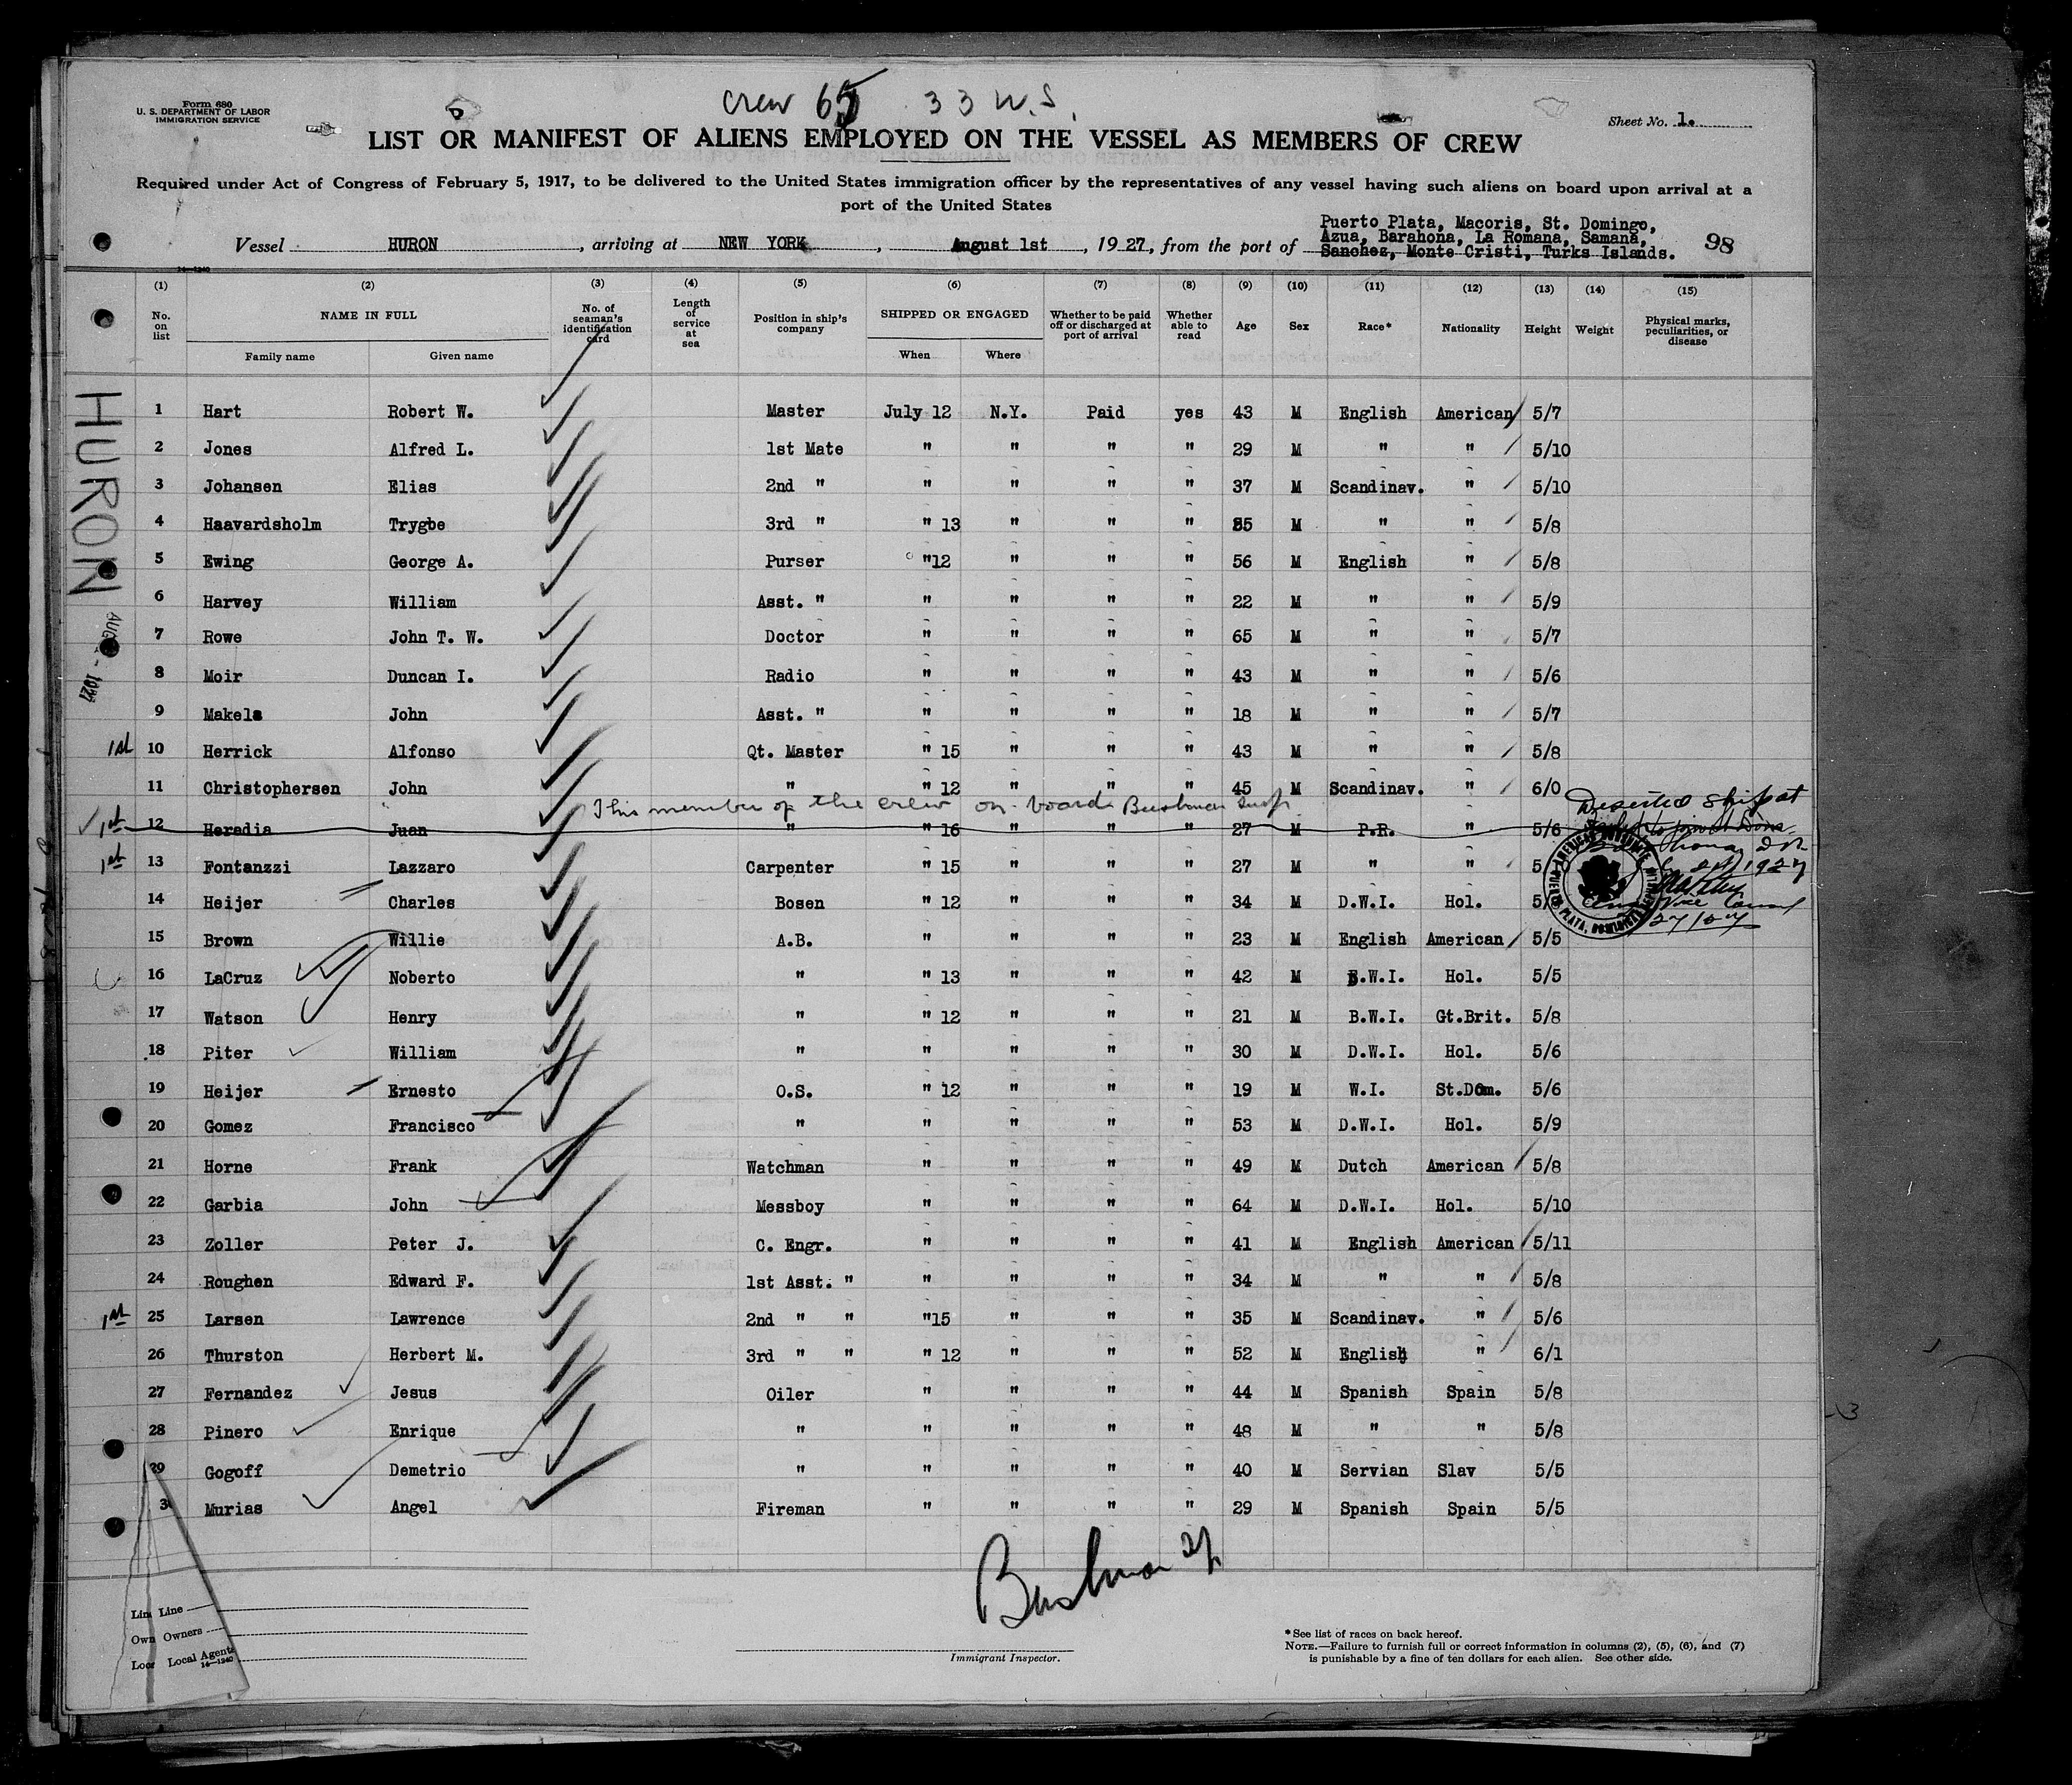 Form 680
U. S. DEPARTMENT OF LABOR
IMMIGRATION SERVICE
Crew 65 33 U.S.
Sheet No. 1.
LIST OR MANIFEST OF ALIENS EMPLOYED ON THE VESSEL AS MEMBERS OF CREW
Required under Act of Congress of February 5, 1917, to be delivered to the United States immigration officer by the representatives of any vessel having such aliens on board upon arrival at a
port of the United States
Vessel HURON, arriving at NEW YORK, August 1st, 1927, from the port of Puerto Plata, Macoris, St. Domingo,
Azua, Barahona, La Romana, Samana,
Sanchez, Monte Cristi, Turks Islands.
98
14—1240
(1) (2) (3) (4) (5) (6) (7) (8) (9) (10) (11) (12) (13) (14) (15)
No. on list NAME IN FULL No. of seaman's identification card Length of service at sea Position in ship's company SHIPPED OR ENGAGED Whether to be paid off or discharged at port of arrival Whether able to read Age Sex Race* Nationality Height Weight Physical marks, peculiarities, or disease
Family name Given name When Where
HURON
1 Hart Robert W. Master July 12 N.Y. Paid yes 43 M English American 5/7
2 Jones Alfred L. 1st Mate " " " " 29 M " " 5/10
3 Johansen Elias 2nd " " " " " 37 M Scandinav. " 5/10
4 Haavardsholm Trygbe 3rd " " 13 " " " M " " 5/8
5 Ewing George A. Purser "12 " " " 56 M English " 5/8
6 Harvey William Asst. " " " " " 22 M " " 5/9
7 Rowe John T. W. Doctor " " " " 65 M " " 5/7
8 Moir Duncan I. Radio " " " " 43 M " " 5/6
9 Makela John Asst. " " " " " 18 M " " 5/7
1st 10 Herrick Alfonso Qt. Master " 15 " " " 43 M " " 5/8
11 Christophersen John " " 12 " " " 45 M Scandinav. " 6/0
This member of the crew on board Bushman Insp
1st 12 Heradia Juan " " 16 " " " 27 M P.R. " 5/6
Deserted ship at
1927
Vice Consul
AMERICAN CONSULATE PUERTO PLATA, DOMINICAN REPUBLIC
1st 13 Fontanzzi Lazzaro Carpenter " 15 " " " 27 M " " 5/
14 Heijer Charles Bosen " 12 " " " 34 M D.W.I. Hol. 5/
15 Brown Willie A.B. " " " " 23 M English American 5/5
16 LaCruz Noberto " " 13 " " " 42 M .W.I. Hol. 5/5
17 Watson Henry " " 12 " " " 21 M B.W.I. Gt.Brit. 5/8
18 Piter William " " " " " 30 M D.W.I. Hol. 5/6
19 Heijer Ernesto O.S. " 12 " " " 19 M W.I. St.Dom. 5/6
20 Gomez Francisco " " " " " 53 M D.W.I. Hol. 5/9
21 Horne Frank Watchman " " " " 49 M Dutch American 5/8
22 Garbia John Messboy " " " " 64 M D.W.I. Hol. 5/10
23 Zoller Peter J. C. Engr. " " " " 41 M English American 5/11
24 Roughen Edward F. 1st Asst. " " " " " 34 M " " 5/8
1st 25 Larsen Lawrence 2nd " " "15 " " " 35 M Scandinav. " 5/6
26 Thurston Herbert M. 3rd " " " 12 " " " 52 M English " 6/1
27 Fernandez Jesus Oiler " " " " 44 M Spanish Spain 5/8
28 Pinero Enrique " " " " " 48 M " " 5/8
29 Gogoff Demetrio " " " " " 40 M Servian Slav 5/5
3 Murias Angel Fireman " " " " 29 M Spanish Spain 5/5
Bushman
Line Line
Own Owners
Loca Local Agents
14—1240
Immigrant Inspector.
*See list of races on back hereof.
NOTE.—Failure to furnish full or correct information in columns (2), (5), (6), and (7)
is punishable by a fine of ten dollars for each alien. See other side.